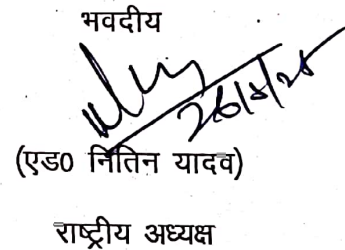 भवदीय
(एड0 नितिन यादव)
राष्ट्रीय अध्यक्ष